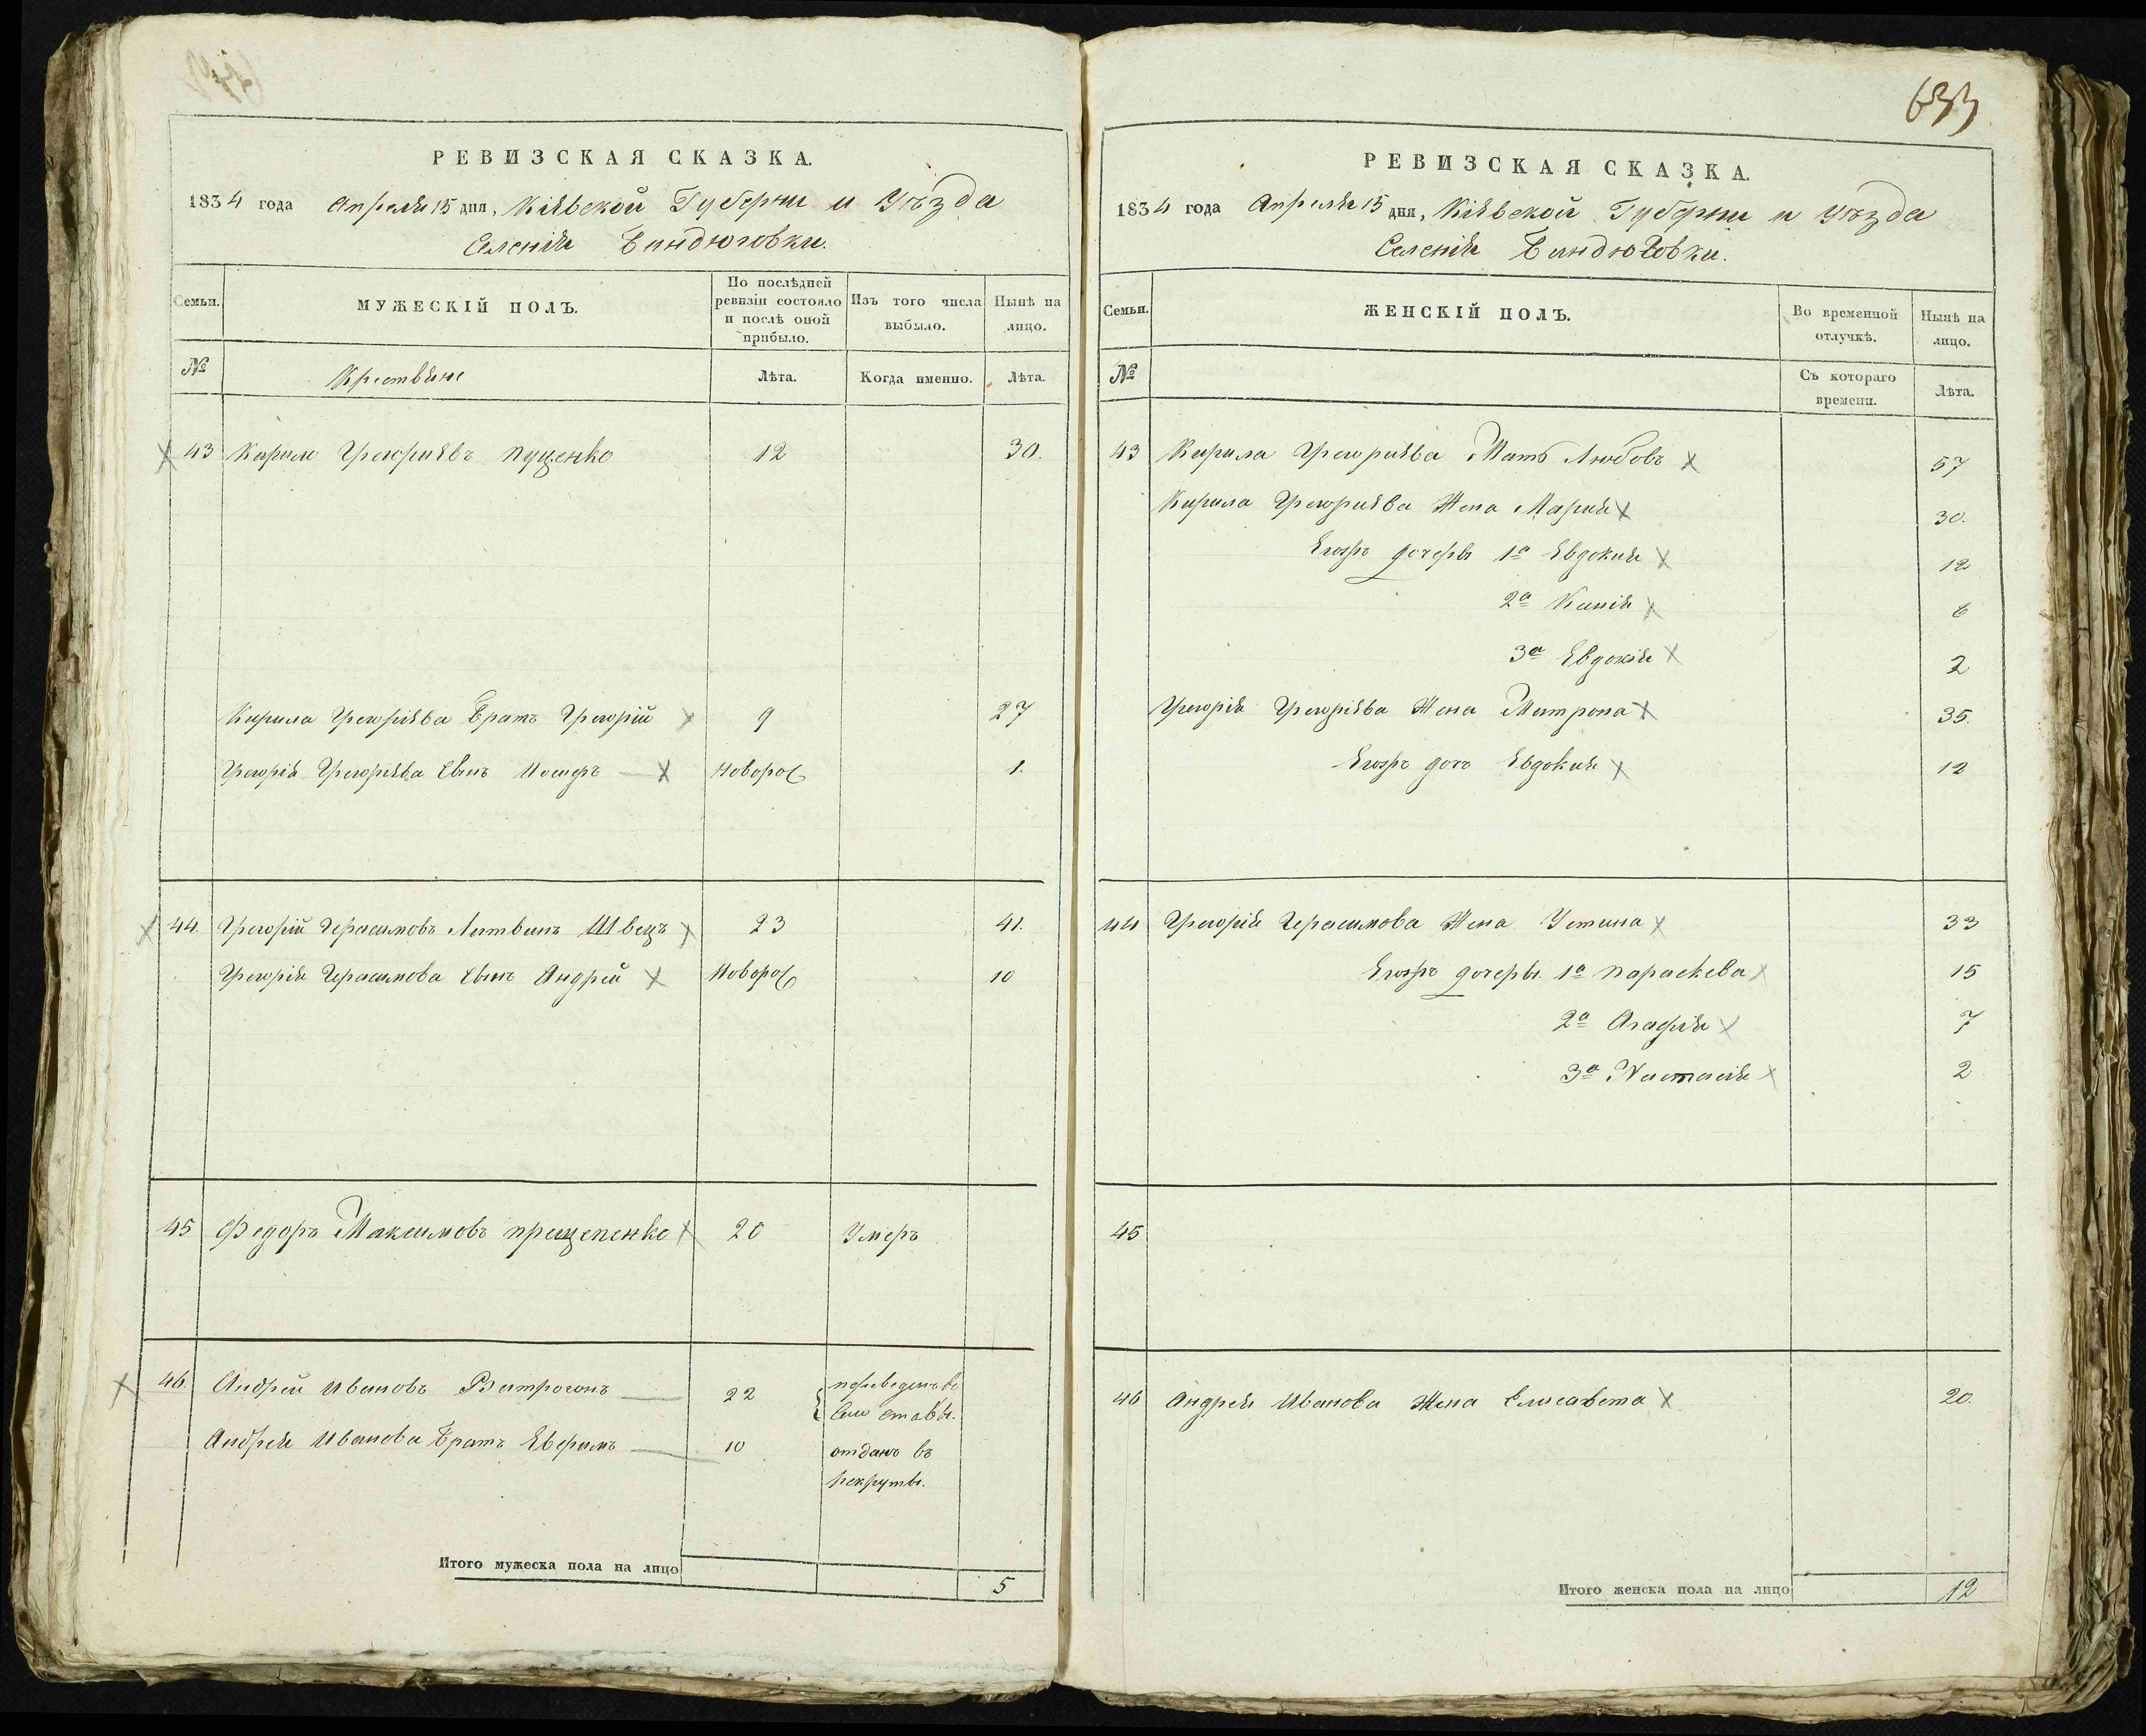 РЕВИЗСКАЯ СКАЗКА.
1834 года Апреля 15 дня, Кіѣвской Губерни и Уѣзда
Селенія Бандюговки.
Семьи.
МУЖЕСКІЙ ПОЛЪ.
По послѣдней ревизіи состояло и послѣ оной прибыло.
Изъ того числа выбыло.
Нынѣ на лицо.
№
Крестьяне
Лѣта.
Когда именно.
Лѣта.
43 Кирило Григориѣвъ Пуценко 12 30.
Кирила Григоріѣва Братъ Григорій 9 27
Григорія Григоріѣва Сынъ Іосифъ Новорож 1.
44. Григорій Герасимовъ Литвинъ Швецъ 23 41.
Григорія Герасимова Сынъ Андрей Новорож 10
45 Федоръ Максимовъ Прищепенко 20 Умеръ
46. Андрей Ивановъ 22 переведенъ въ
Село
Андрея Иванова Братъ 10 отданъ въ
рекруты.
Итого мужеска пола на лицо 5
633
РЕВИЗСКАЯ СКАЗКА.
1834 года Апреля 15 дня, Кіѣвской Губерни и Уѣзда
Селенія Бандюговки.
Семьи.
ЖЕНСКІЙ ПОЛЪ.
Во временной отлучкѣ.
Нынѣ на лицо.
№
Съ котораго времени.
Лѣта.
43 Кирила Григориѣва Мать Любовъ 57
Кирила Григориѣва Жена Мария 30.
Егожъ дочеры 1а Евдокия 12
2а 6
3а Евдокія 2
Григорія Григоріѣва Жена Матрона 35.
Егожъ дочь Евдокия 12
44 Григорія Герасимова Жена Устина 33
Егожъ дочеры. 1а Параскева 15
2а Агафия 7
3а Настасія 2
45
46 Андрея Иванова Жена Елисавета 20.
Итого женска пола на лицо 12